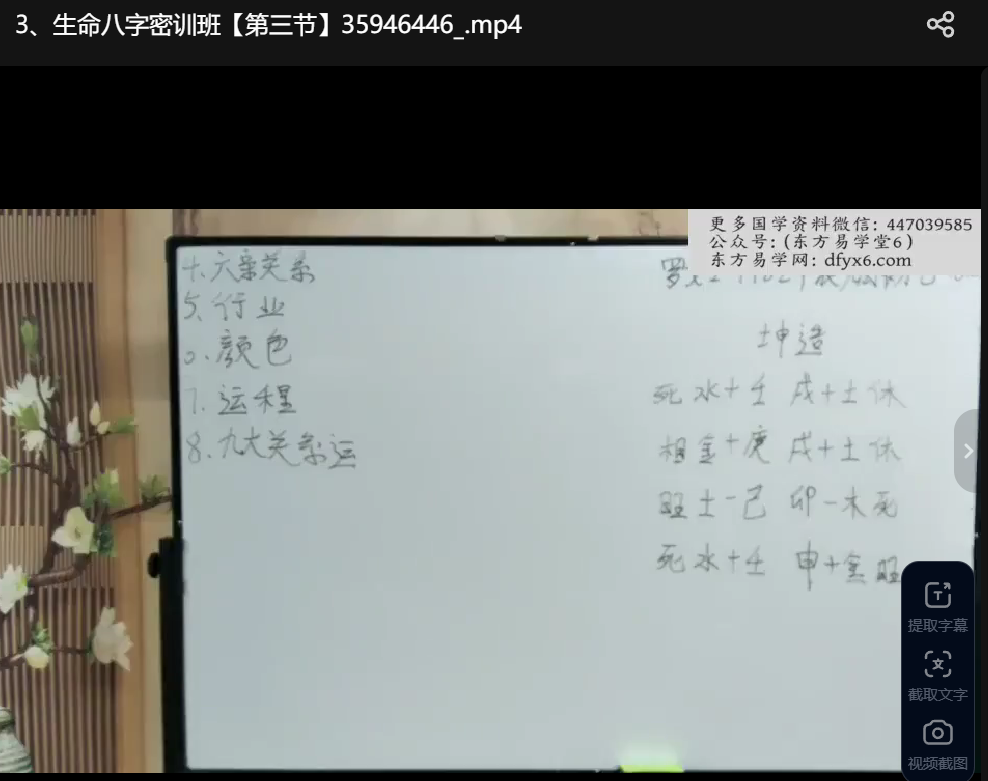 3、生命八字密训班【第三节】35946446_.mp4
更多国学资料微信：447039585
公众号：(东方易学堂6)
东方易学网：dfyx6.com
4.六亲关系
5.行业
颜色
7.运程
8.九大关系运
坤造
死水+壬 戌+土休
相金+庚 戌+土休
旺土-己 卯-木死
死水+壬 申+金旺
提取字幕
截取文字
视频截图